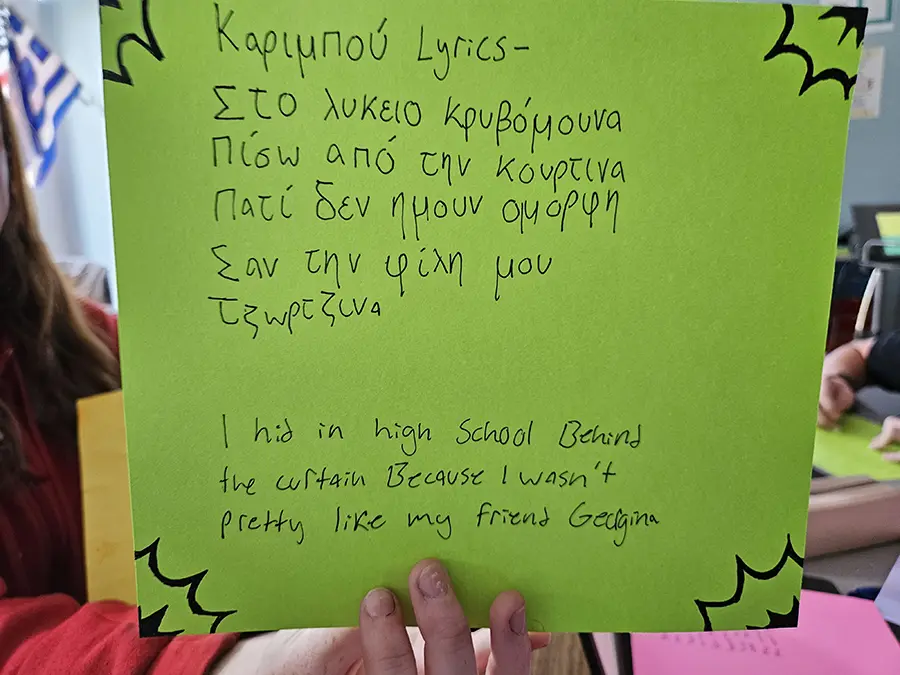 Καριμπού Lyrics-
Στο λυκειο κρυβόμουνα
Πίσω από την κουρτινα
Πατί δεν ημουν ομορφη
Σαν την φίλη μου
Τζωρτζινα
I hid in high School Behind
the curtain Because I wasn't
pretty like my friend Georgina